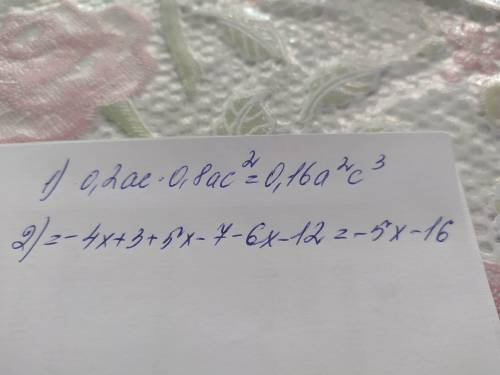 1) 0,2ac · 0,8ac² = 0,16a²c³
2) = -4x+3+5x-7-6x-12 = -5x-16